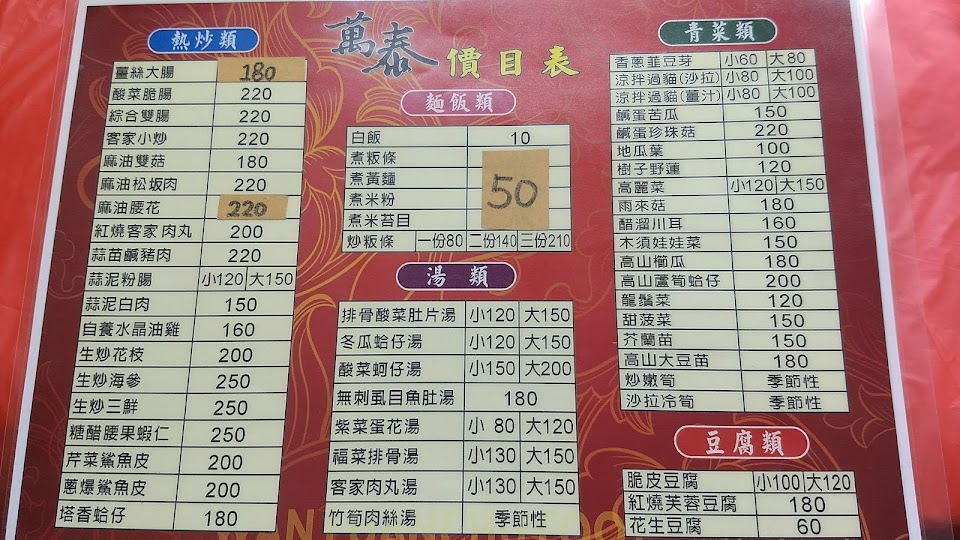 萬泰 價目表
熱炒類
薑絲大腸 180
酸菜脆腸 220
綜合雙腸 220
客家小炒 220
麻油雙菇 180
麻油松坂肉 220
麻油腰花 220
紅燒客家肉丸 200
蒜苗鹹豬肉 220
蒜泥粉腸 小120 大150
蒜泥白肉 150
白養水晶油雞 160
生炒花枝 200
生炒海參 250
生炒三鮮 250
糖醋腰果蝦仁 250
芹菜鯊魚皮 200
蔥爆鯊魚皮 200
塔香蛤仔 180
麵飯類
白飯 10
煮粄條
煮黃麵
煮米粉
煮米苔目
50
炒粄條 一份80 二份140 三份210
湯類
排骨酸菜肚片湯 小120 大150
冬瓜蛤仔湯 小120 大150
酸菜蚵仔湯 小150 大200
無刺虱目魚肚湯 180
紫菜蛋花湯 小 80 大120
福菜排骨湯 小130 大150
客家肉丸湯 小130 大150
竹筍肉絲湯 季節性
青菜類
香蔥韮豆芽 小60 大80
涼拌過貓(沙拉) 小80 大100
涼拌過貓(薑汁) 小80 大100
鹹蛋苦瓜 150
鹹蛋珍珠菇 220
地瓜葉 100
樹子野蓮 120
高麗菜 小120 大150
雨來菇 180
醋溜川耳 160
木須娃娃菜 150
高山櫛瓜 180
高山蘆筍蛤仔 200
龍鬚菜 120
甜菠菜 150
芥蘭苗 150
高山大豆苗 180
炒嫩筍 季節性
沙拉冷筍 季節性
豆腐類
脆皮豆腐 小100 大120
紅燒芙蓉豆腐 180
花生豆腐 60